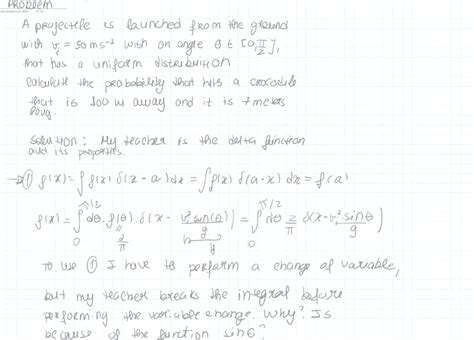 Problem
A projectile is launched from the ground
with v_i = 50 ms⁻¹ with an angle θ ∈ [0, π/2],
that has a uniform distribution
calculate the probability that hits a crocodile
that is 100 m away and it is 7 meters
long.
Solution: My teacher is the delta function
and its properties.
→ ① f(x) = ∫ f(x) δ(x - a) dx = ∫ f(x) δ(a - x) dx = f(a)
f(x) = ∫₀^{π/2} dθ f(θ) δ(x - v_i² sin(θ)/g) = ∫₀^{π/2} dθ 2/π δ(x - v_i² sin θ/g)
2/π
y
to use ① I have to perform a change of variable,
but my teacher breaks the integral before
performing the variable change. Why? Is
because of the function sin θ?